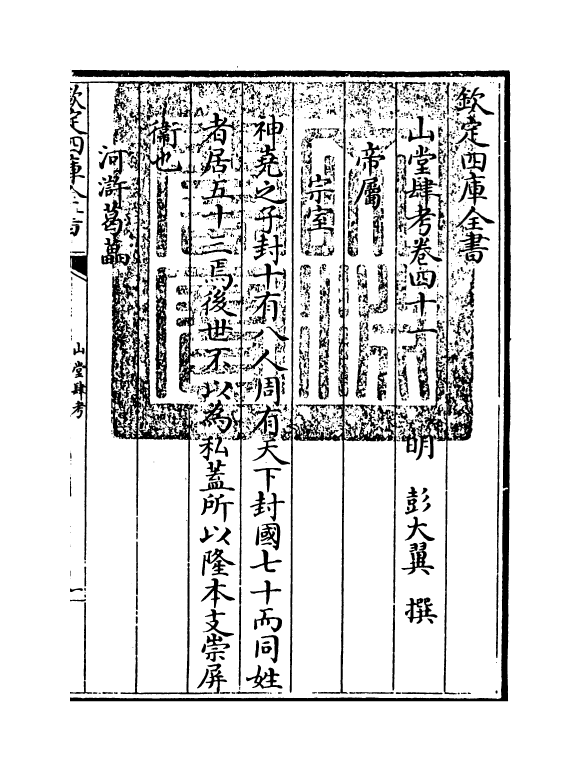 欽定四庫全書
山堂肆考卷四十一　明　彭大翼　撰
帝屬
宗室
神堯之子封十有八人周有天下封國七十而同姓
者居五十三焉後世不以為私蓋所以隆本支崇屏
衛也
河滸葛藟
欽定四庫全書
山堂肆考